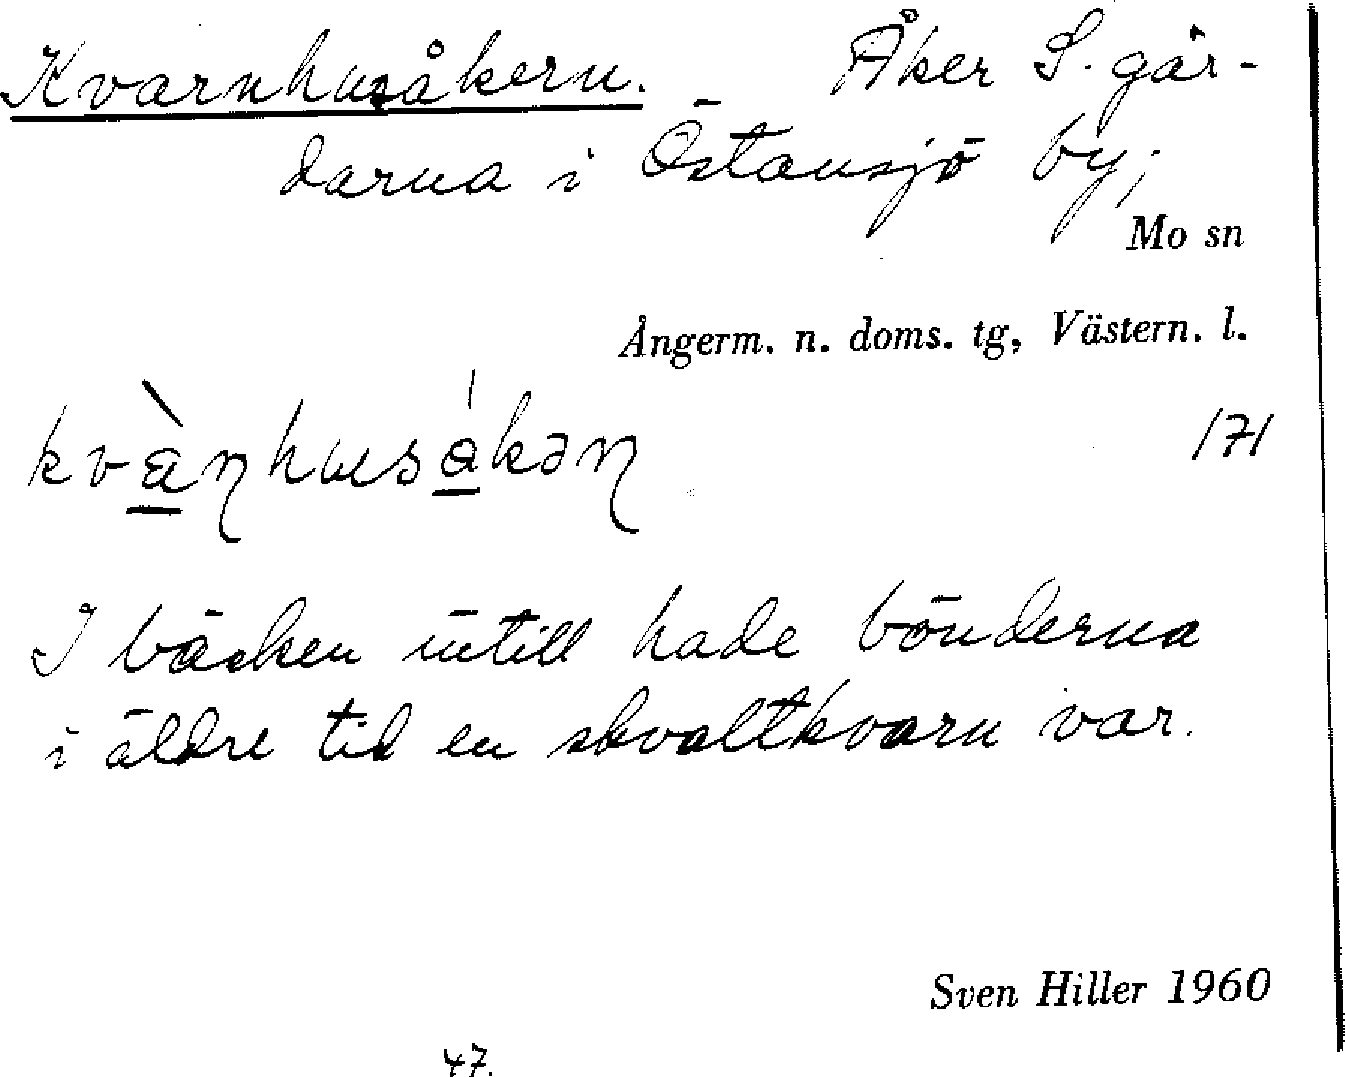 Kvarnhusåkern. Åker S. går-
darna i Östansjö by;
Mo sn
Ångerm. n. doms. tg, Västern. l.
kvà̱ŋhusá̱kəŋ 171
I bäcken intill hade bönderna
i äldre tid en skvaltkvarn var.
Sven Hiller 1960
47.